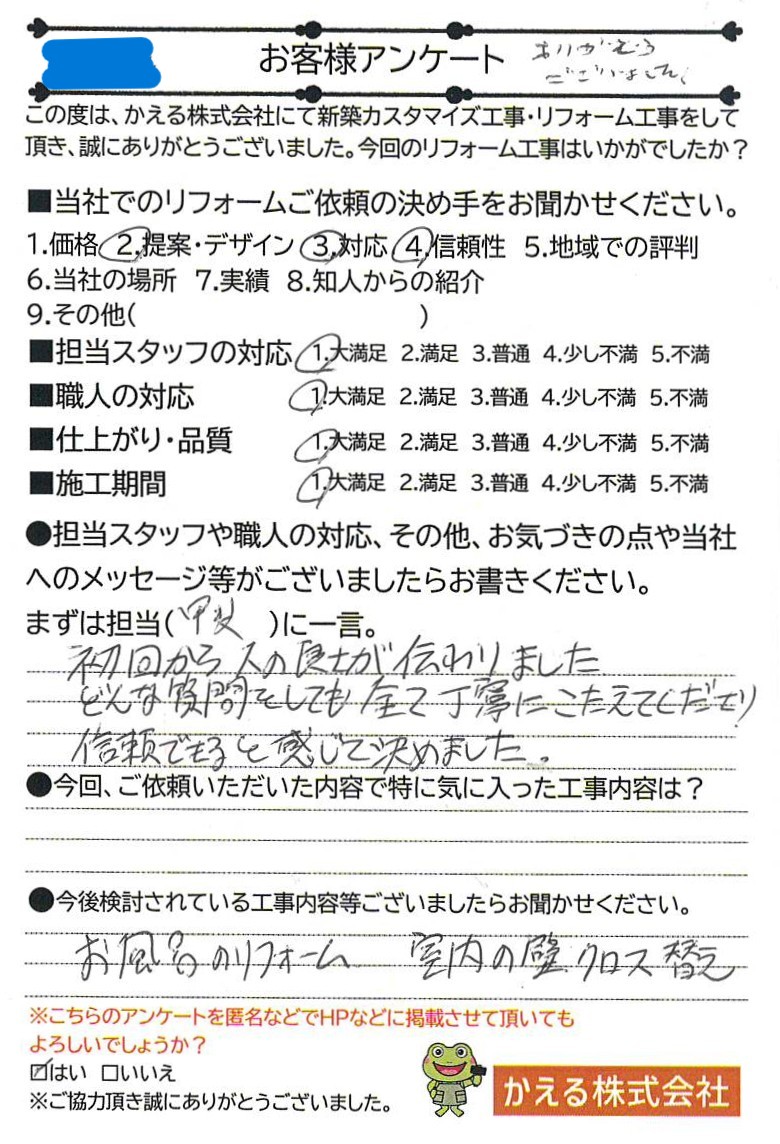 お客様アンケート ありがとう
ございました。
この度は、かえる株式会社にて新築カスタマイズ工事・リフォーム工事をして
頂き、誠にありがとうございました。今回のリフォーム工事はいかがでしたか？
■当社でのリフォームご依頼の決め手をお聞かせください。
1.価格 2.提案・デザイン 3.対応 4.信頼性 5.地域での評判
6.当社の場所 7.実績 8.知人からの紹介
9.その他( )
■担当スタッフの対応 1.大満足 2.満足 3.普通 4.少し不満 5.不満
■職人の対応 1.大満足 2.満足 3.普通 4.少し不満 5.不満
■仕上がり・品質 1.大満足 2.満足 3.普通 4.少し不満 5.不満
■施工期間 1.大満足 2.満足 3.普通 4.少し不満 5.不満
●担当スタッフや職人の対応、その他、お気づきの点や当社
へのメッセージ等がございましたらお書きください。
まずは担当(甲斐)に一言。
初回から人の良さが伝わりました
どんな質問をしても全て丁寧にこたえてくださり
信頼できると感じて決めました。
●今回、ご依頼いただいた内容で特に気に入った工事内容は？
●今後検討されている工事内容等ございましたらお聞かせください。
お風呂のリフォーム 室内の壁クロス替え
※こちらのアンケートを匿名などでHPなどに掲載させて頂いても
よろしいでしょうか？
☑はい □いいえ
※ご協力頂き誠にありがとうございました。
かえる株式会社